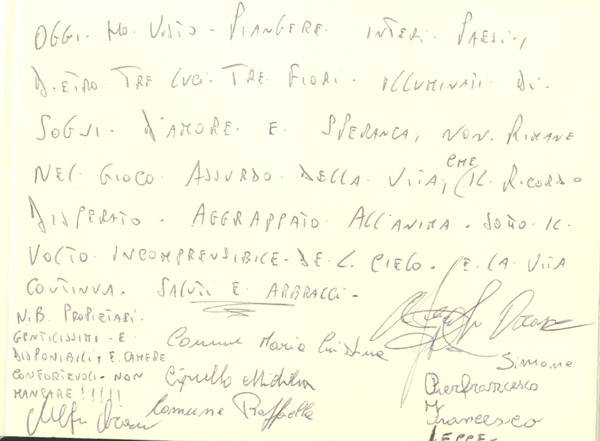 OGGI HO VISTO PIANGERE INTERI PAESI,
DIETRO TRE LUCI TRE FIORI ILLUMINATI DI
SOGNI D'AMORE E SPERANZA, NON RIMANE
NEL GIOCO ASSURDO DELLA VITA, CHE IL RICORDO
DISPERATO AGGRAPPATO ALL'ANIMA SOTTO IL
VOLTO INCOMPRENSIBILE DEL CIELO E LA VITA
CONTINUA. SALUTI E ABBRACCI
N.B. PROPIETARI
GENTICISSIMI E
DISPONIBILI, E CAMERE
CONFORTEVOLI NON
MANCARE !!!!!
Maria Cristina
Raffaella
Simone
Pierfrancesco
Francesco